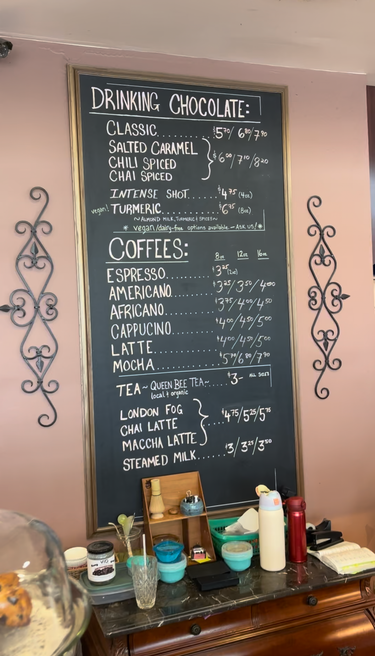 DRINKING CHOCOLATE:
CLASSIC........$5.70/6.80/7.90
SALTED CARAMEL
CHILI SPICED
CHAI SPICED
$6.00/7.10/8.20
INTENSE SHOT......$4.75 (4oz)
vegan! TURMERIC........$6.75 (8oz)
~ALMOND MILK, TURMERIC & SPICES~
* vegan/dairy-free options available - ASK US! *
COFFEES: 8oz 12oz 16oz
ESPRESSO..........$3.25 (2oz)
AMERICANO........$3.25/3.50/4.00
AFRICANO.........$3.75/4.00/4.50
CAPPUCINO.......$4.00/4.50/5.00
LATTE............$4.00/4.50/5.00
MOCHA...........$5.70/6.80/7.90
TEA~ QUEEN BEE TEA~....$3-
local & organic
LONDON FOG
CHAI LATTE
MACCHA LATTE
$4.75/5.25/5.75
STEAMED MILK......$3/3.25/3.50